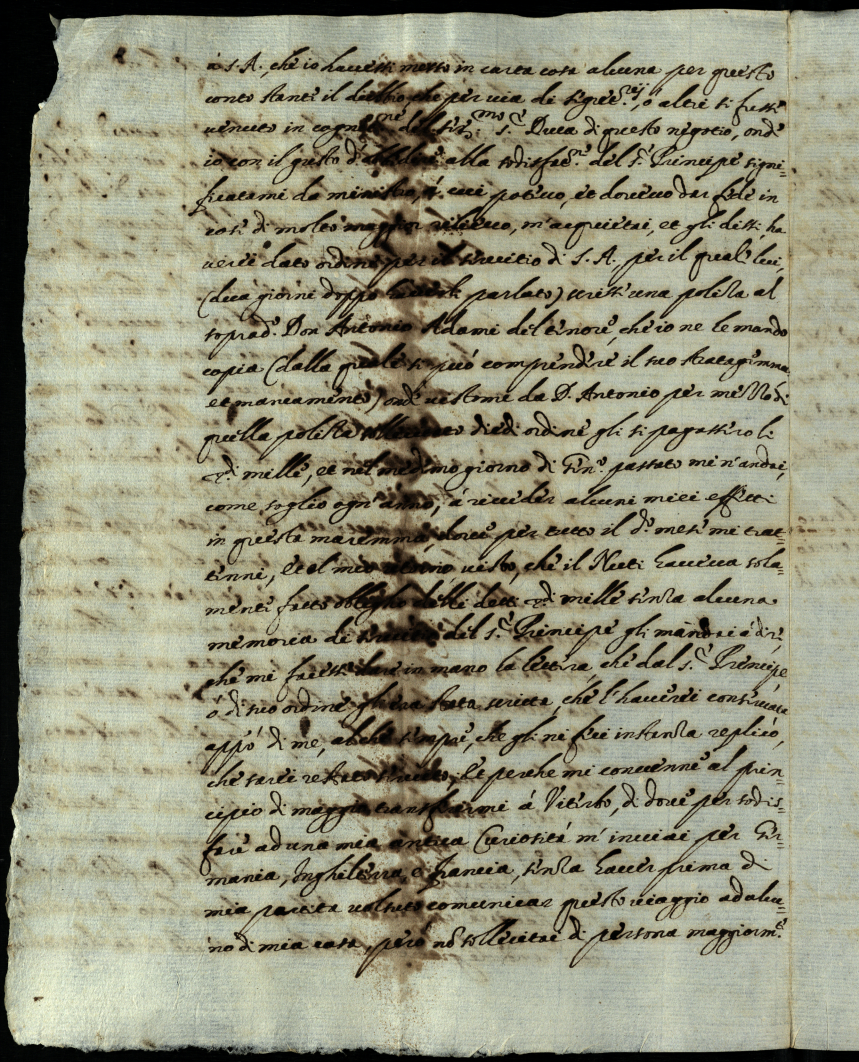 à S. A., che io havessi messo in carta cosa alcuna per questo
conto stanti il dubbio che per via di segre.rij, ò altri si fusse
venuto in cogne.ne del Ser.mo S.r Duca di questo negotio, onde
io con il gusto d' alla sodisfat.ne del S.r Principe signi=
ficatami da ministro, à cui potevo, et dovevo dar fede in
cose di molto maggior rilievo, m'acquietai, et gli dissi, ha
verei dato ordine per il servitio di S. A., per il quale lui,
(dua giorni doppo havermi parlato) scrisse una polisa al
soprad.o Don Antonio Adami del tenore, che io ne le mando
copia (dalla quale si può comprendere il suo stratagemma,
et mancamento) onde vistome da D. Antonio per mezzo di
quella polisa sollecitato diedi ordine gli si pagassero li
mille, et nel medemo giorno di Gen.o passato me n'andai,
come soglio ogn'anno, à riveder alcuni miei effetti
in questa maremma, dove per tutto il d.o mese mi trat=
tenni, et al mio ritorno visto, che il Nuti haveva sola=
mente fatto obligho delli detti mille senza alcuna
memoria di servitio del S.r Principe gli mandai à dire,
che mi facesse dare in mano la lettera, che dal S.r Principe
ò di suo ordine gli era stata scritta, che l'haverei conservata
appò di me, al che sempre, che gli ne feci instanza replicò,
che sarei restato servito, et perche mi convenne al prin=
cipio di maggio transferirmi à Viterbo, di dove per sodis=
fare ad una mia antica Curiosità m'inviai per Ger=
mania, Inghilterra, e Francia, senza haver prima di
mia partita voluto comunicar questo viaggio ad alcu=
no di mia casa, però nõ sollecitai di persona maggiorm.te